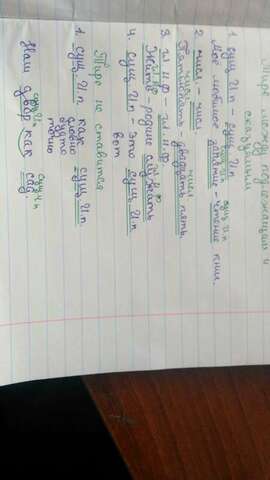 Тире между подлежащим и
сказуемым
1. сущ Ип - сущ Ип
сущ Ип
Моё любимое занятие - чтение книг.
2 числ - числ
числ числ
Пятью пять - двадцать пять
3. гл Н.Ф - гл Н.Ф
Жить - родине служить
4. сущ Ип - это сущ Ип
вот
Тире не ставится
1. сущ Ип как сущ Ип.
словно
будто
точно
сущ Ип сущ Ип
Наш двор как сад.